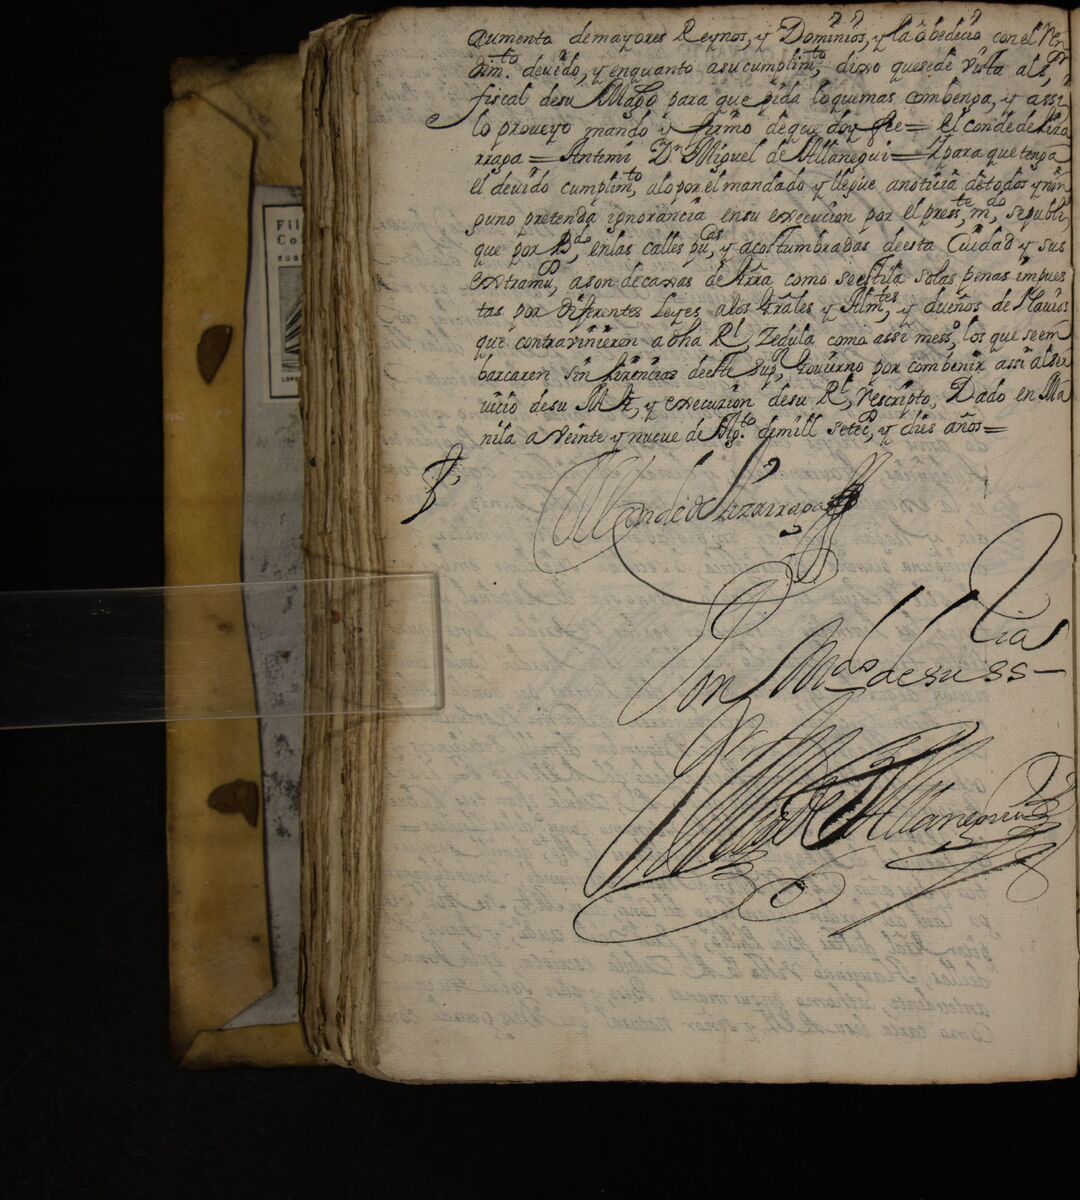 aumento demayores Reynos, y Dominios, y la obedecio con el Ren
dim.to deuido, y enquanto asucumplim.to, dixo quesede vista al s.r
fiscal desu Mag.d para que pida loquemas combenga, y assi
lo proveyo mando y firmo deque doy fee = el conde de Liza
rrapa = Antemi D.n Miguel de Allanegui = Y para que tenga
el deuido cumplim.to, alo por el mandado y llegue anoticia detodos y nin
guno pretenda ignorancia ensu execucion por el press.te m.do, sepubli
que por B.do, enlas calles pu.cas, y acostumbradas deesta Ciudad y sus
extramu.o, ason decaxas de
como seestila solas penas impues
tas por diferentes Leyes, alos Grãles y Alm.tes, y dueños de Nauios
que contravinieren a dha R.l Zedula como assi mess.o, los que seem
barcaren sin licencias deeste Sup.or Gouierno por combenir assi alser
uicio desu M.d, y execuzion desu R.l, rescripto, Dado en Ma
nila a veinte y nueve de Ag.to demill setec.o, y dies años =
El Conde de Lizarrapa
Por M.do desu ss.ria
D.n Miguel de Allanegui
Fil
Co